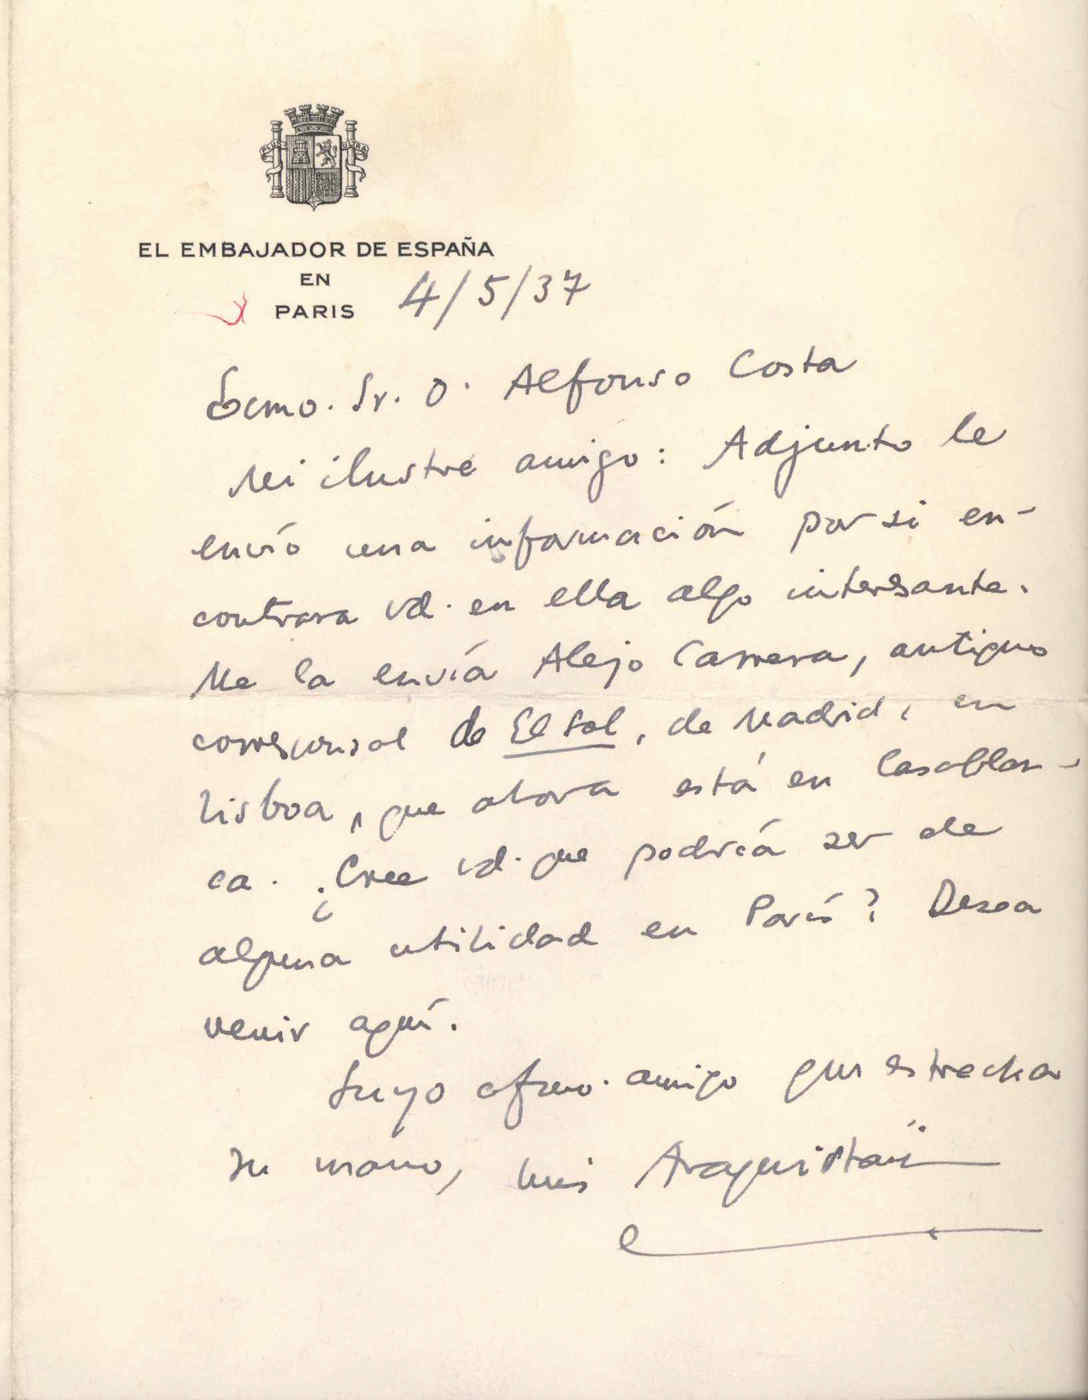 EL EMBAJADOR DE ESPAÑA
EN
PARIS 4/5/37
Excmo. Sr. D. Alfonso Costa
Mi ilustre amigo: Adjunto le
envío una información por si en-
contrara vd. en ella algo interesante.
Me la envía Alejo Carrera, antiguo
corresponsal de El Sol, de Madrid, en
Lisboa, que ahora está en Casablan-
ca. ¿Cree vd. que podría ser de
alguna utilidad en París? Desea
venir aquí.
Suyo afmo. amigo que estrecha
su mano, Luis Araquistáin